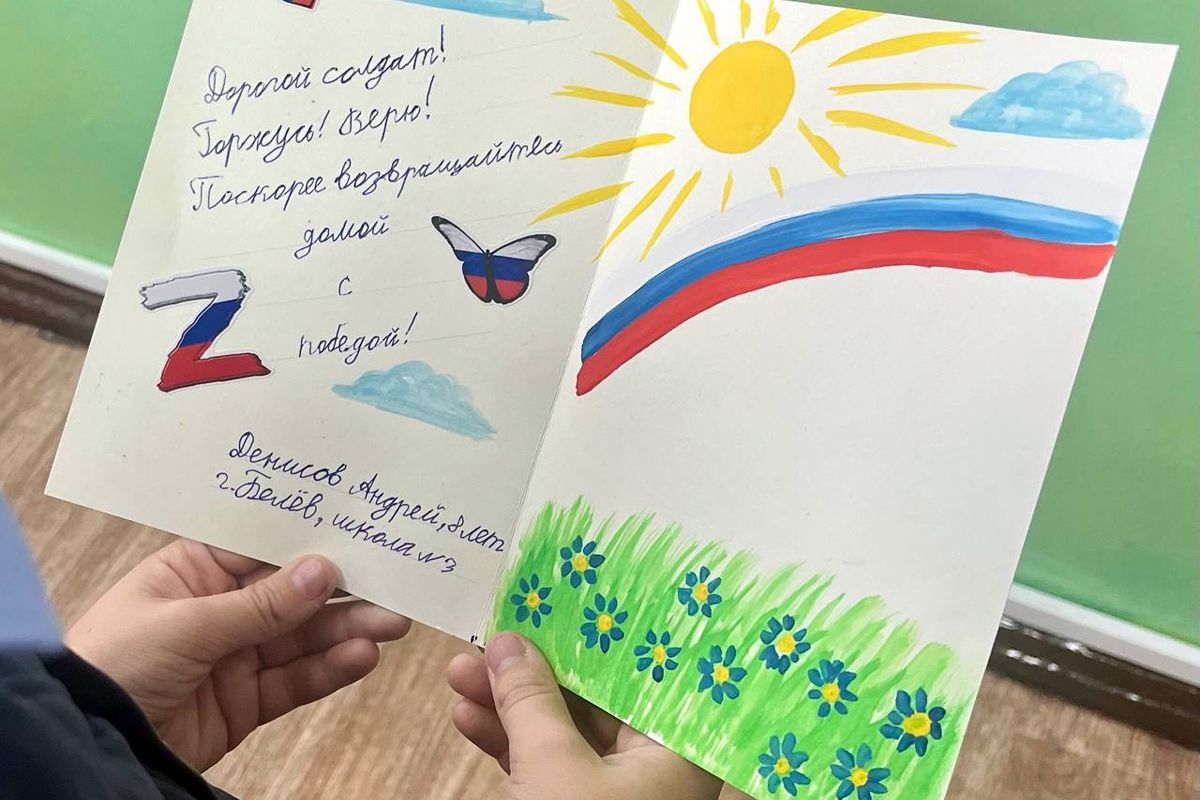 Дорогой солдат!
Горжусь! Верю!
Поскорее возвращайтесь
домой
с
победой!
Z
Денисов Андрей, 8 лет
г. Белёв, школа №3